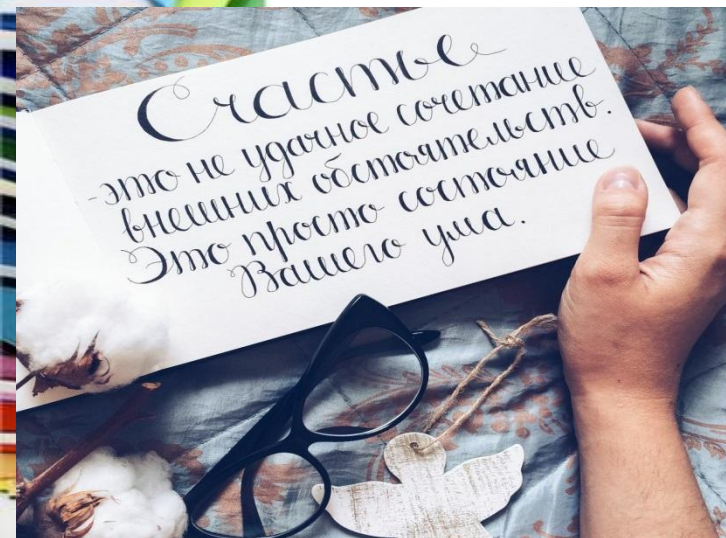 Счастье
-это не удачное сочетание
внешних обстоятельств.
Это просто состояние
Вашего ума.